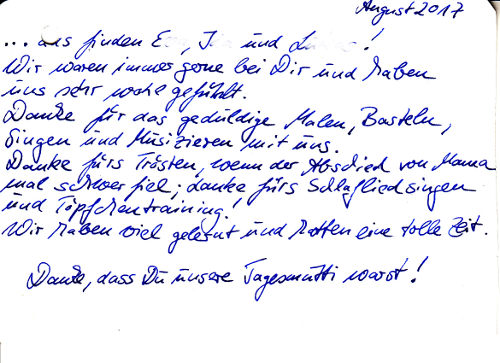 August 2017
... das finden E und !
Wir waren immer gerne bei Dir und haben
uns sehr wohl gefühlt.
Danke für das geduldige Malen, Basteln,
Singen und Musizieren mit uns.
Danke fürs Trösten, wenn der Abschied von Mama
mal schwer fiel; danke fürs Schlafliedsingen
und Töpfchentraining!
Wir haben viel gelernt und hatten eine tolle Zeit.
Danke, dass Du unsere Tagesmutti warst!